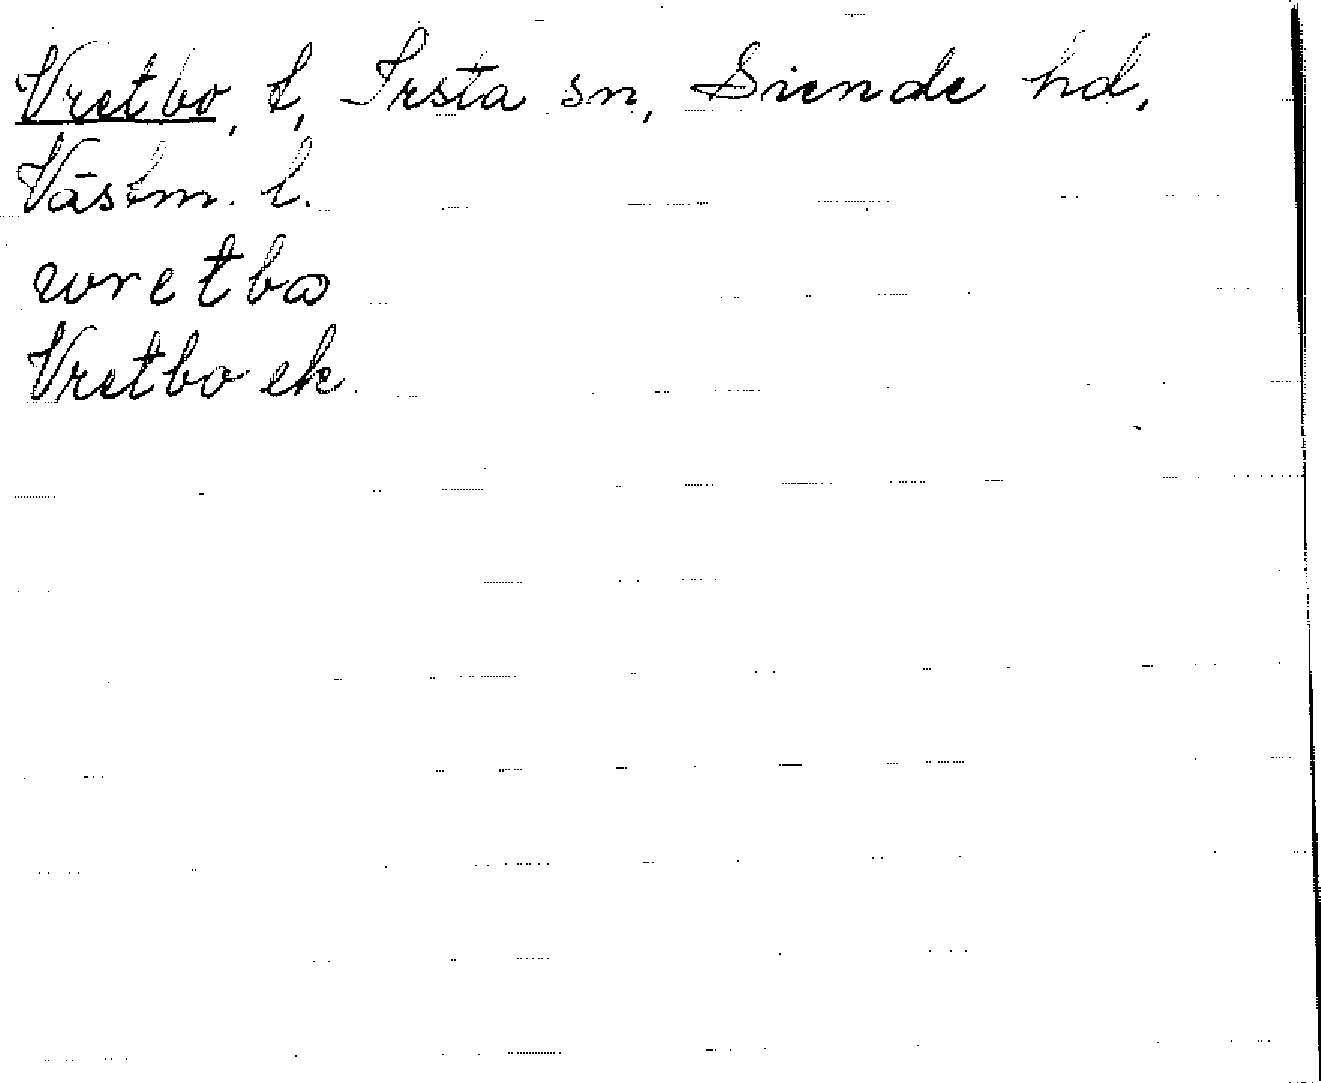 Vretbo, t, Irsta sn, Siende hd,
Västm. l.
vretbω
Vretbo ek.